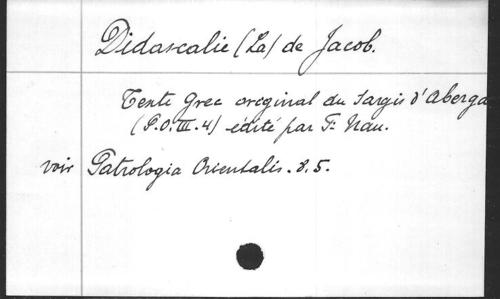 Didascalie (La) de Jacob.
Texte Grec original du Sargis d'Aberga
(P.O. III. 4) édité par F. Nau.
voir Patrologia Orientalis. 8. 5.